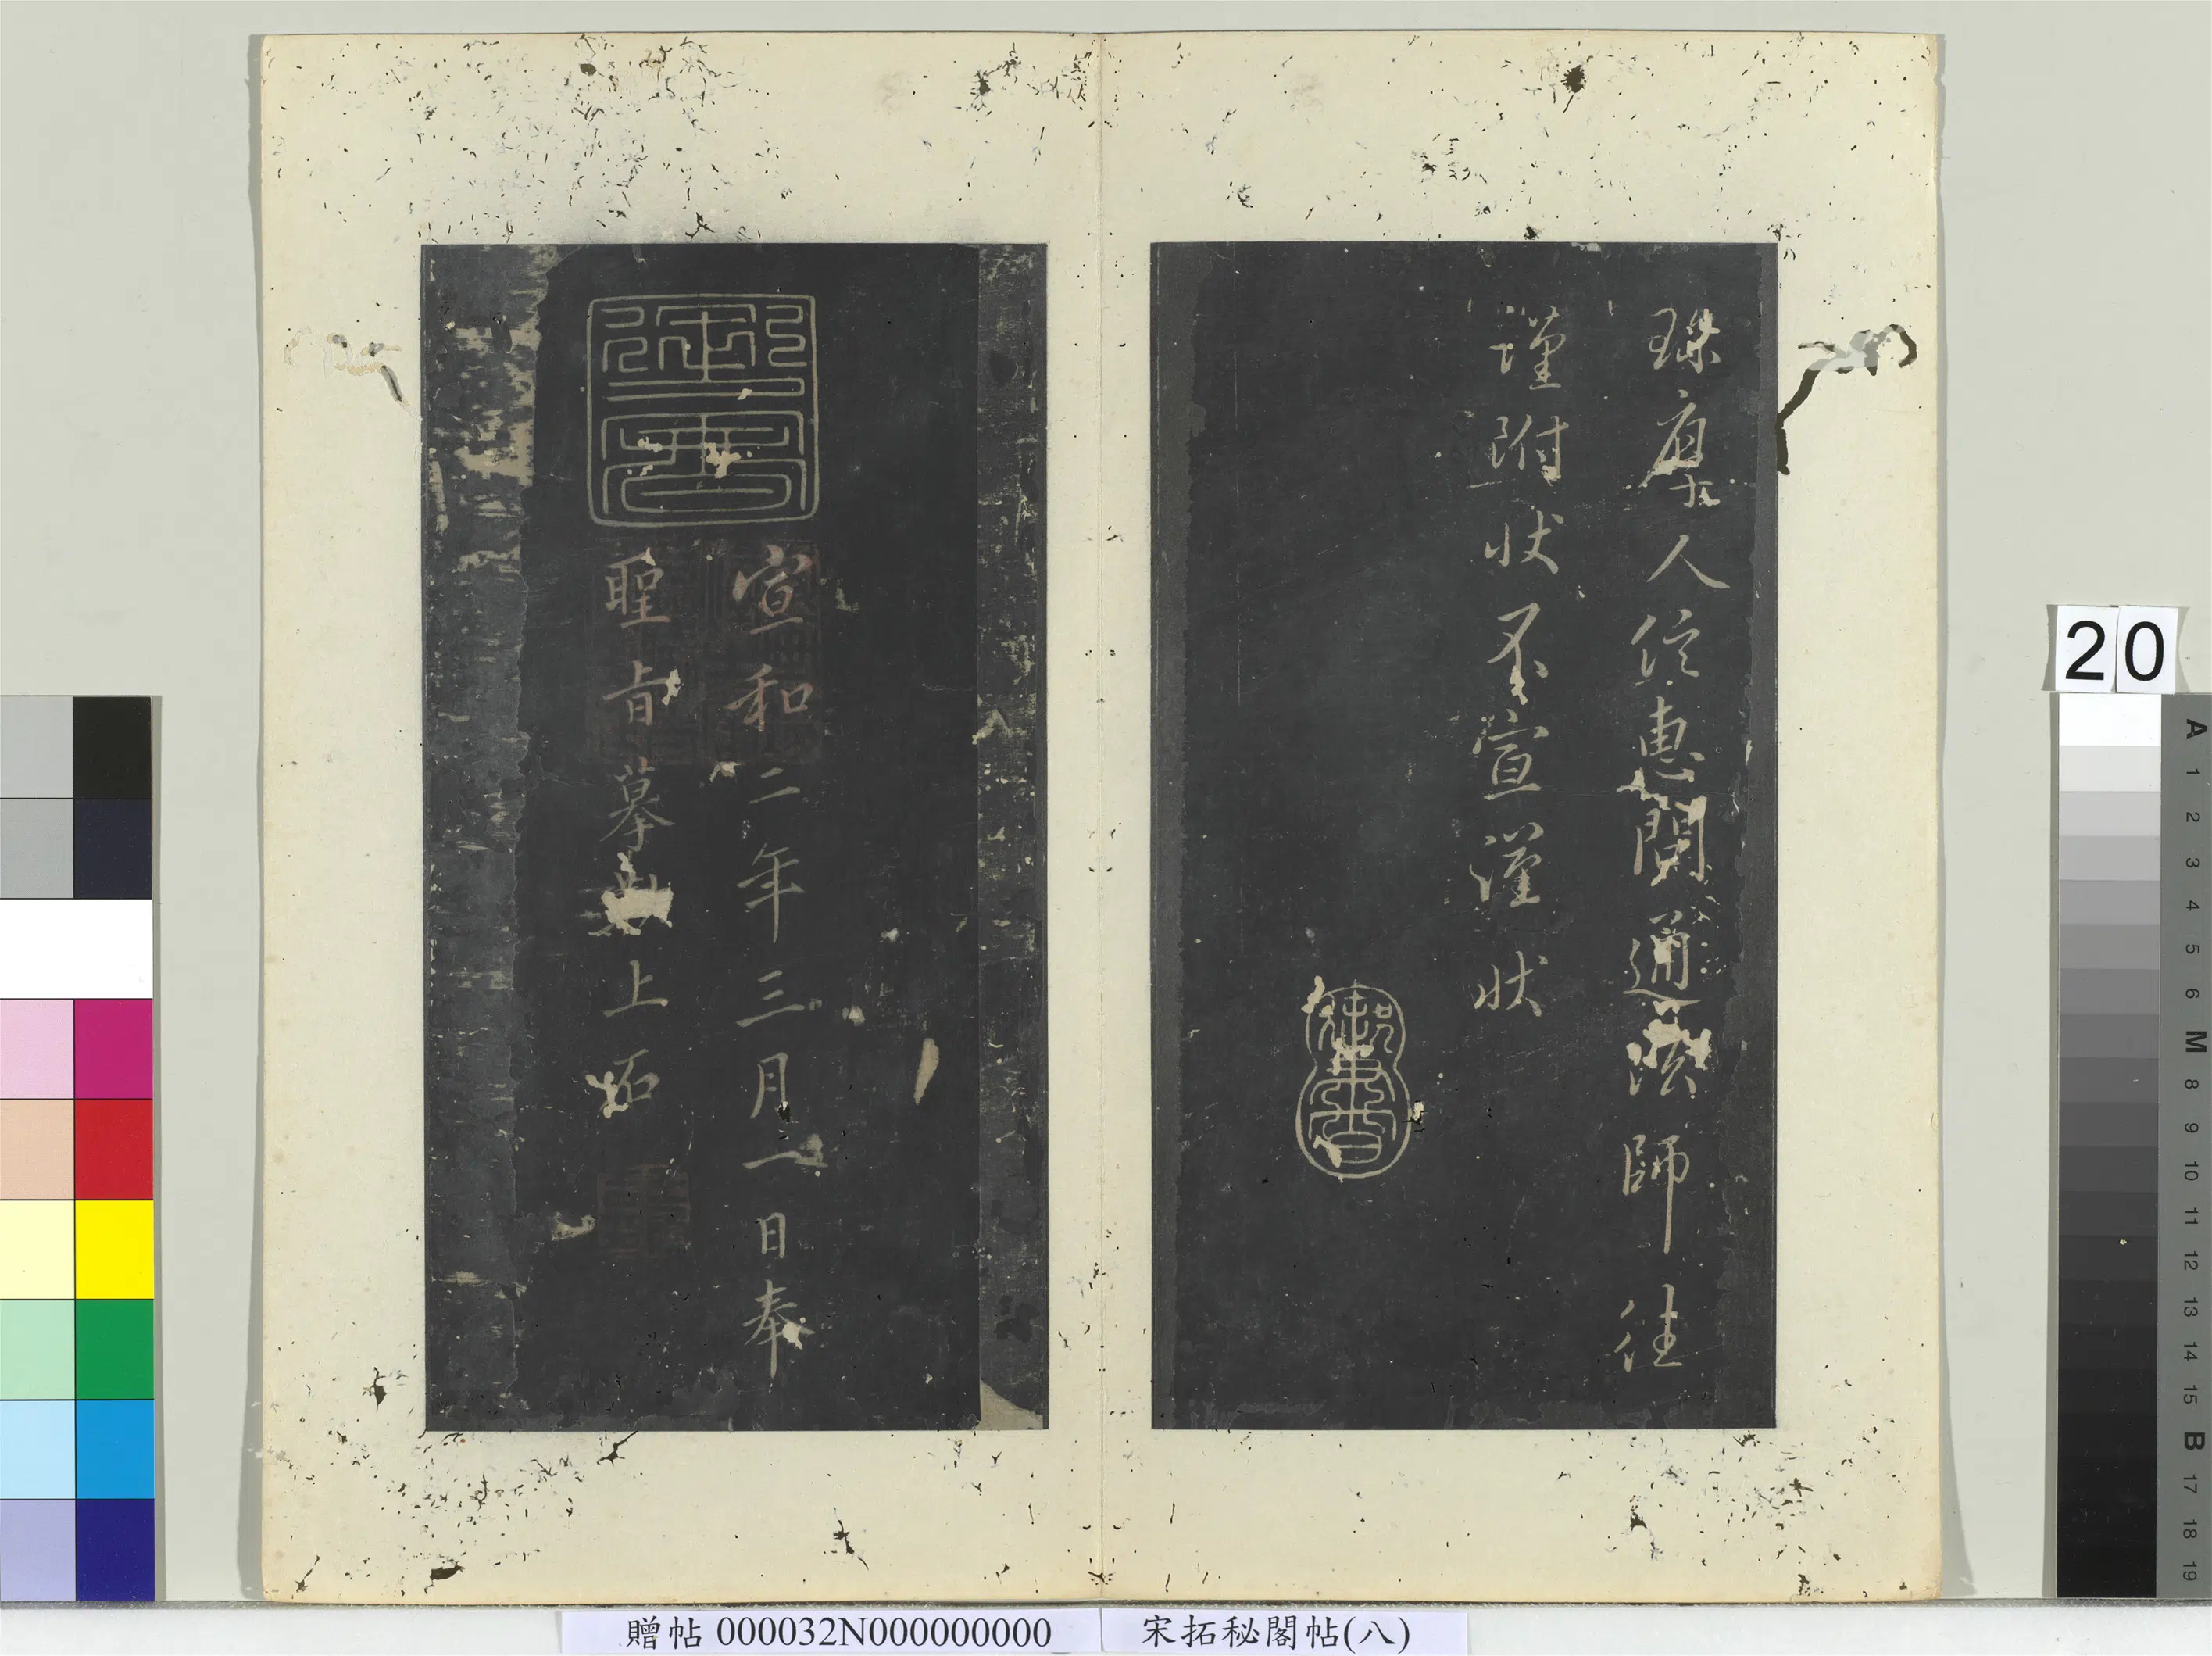 人信惠問通法師往
謹附狀不宣謹狀
御書
御書
宣和二年三月一日奉
聖旨摹勒上石
20
A 1 2 3 4 5 6 M 8 9 10 11 12 13 14 15 B 17 18 19
贈帖 000032N000000000
宋拓秘閣帖(八)